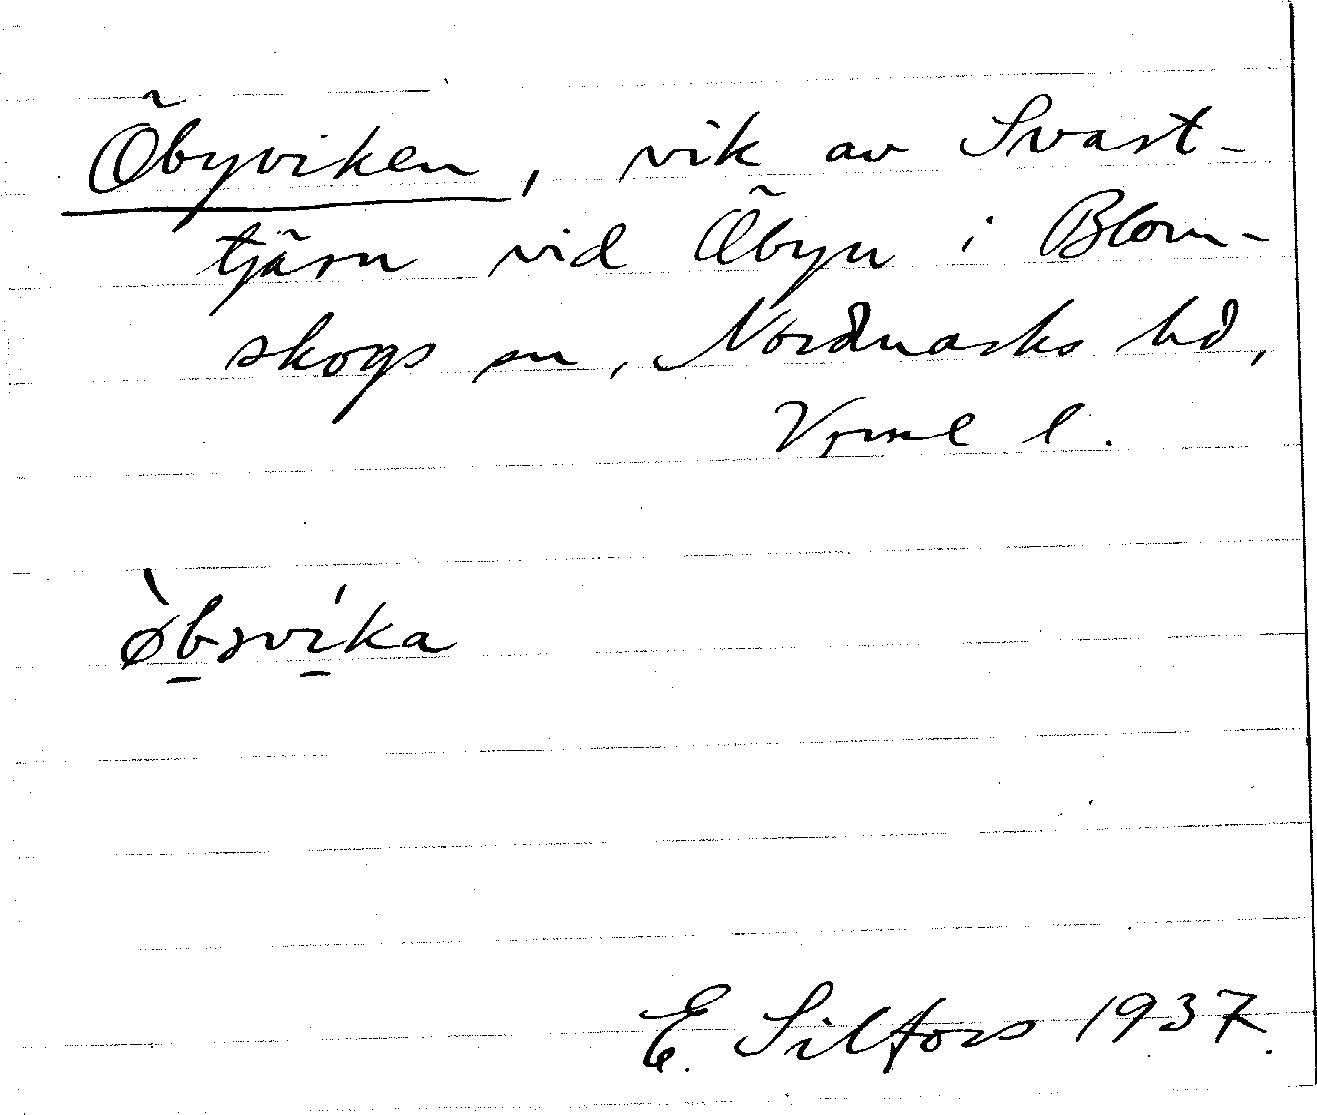 Öbyviken, vik av Svart-
tjärn vid Öbyn i Blom-
skogs sn, Nordmarks hd,
Vrml l.
ø̀bɔvíka
E. Silfors 1937.